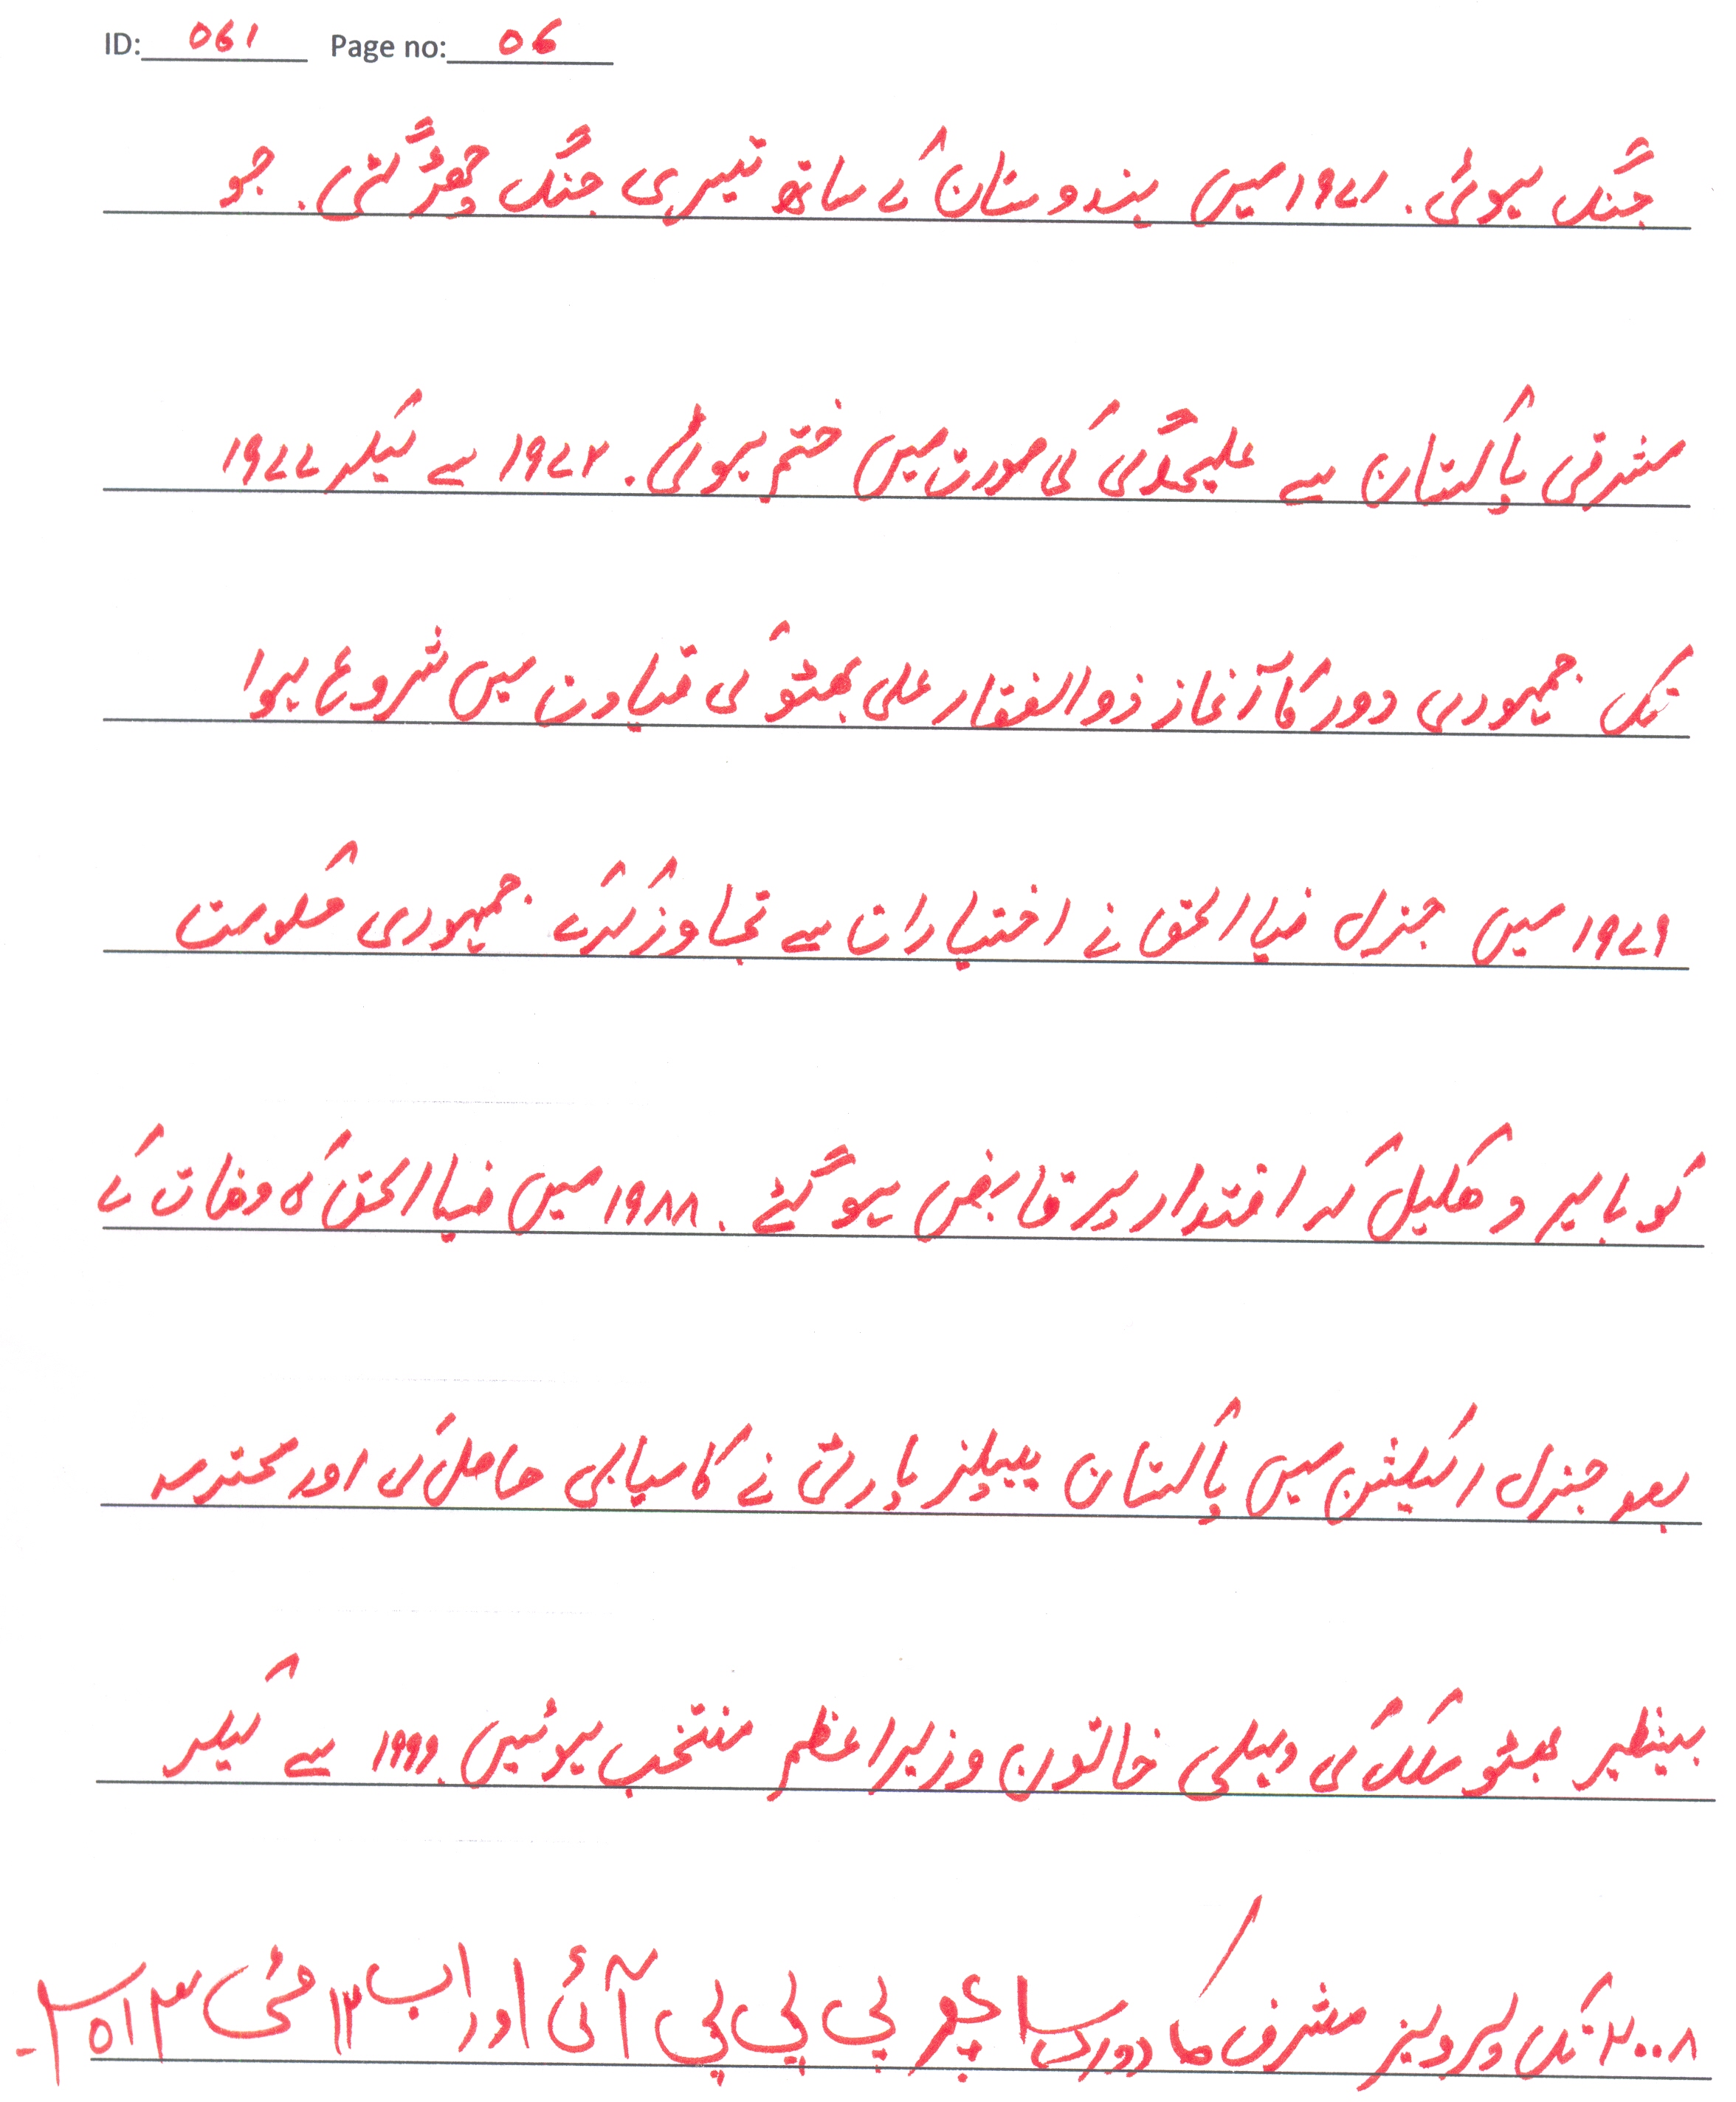 ID: 061 Page no: 06
جنگ ہوئی. ۱۹۷۱ میں ہندوستان کے ساتھ تیسری جنگ چھڑ گئی. جو
مشرقی پاکستان سے علیحدگی کی صورت میں ختم ہوئی. ۱۹۷۲ سے لیکر ۱۹۷۷
تک جمہوری دور کا آغاز ذوالفقار علی بھٹو کی قیادت میں شروع ہوا
۱۹۷۹ میں جنرل ضیا الحق نے اختیارات سے تجاوز کرکے جمہوری حکومت
کو باہر دھکیل کر اقتدار پر قابض ہو گئے. ۱۹۸۸ میں ضیا الحق کہ وفات کے
بعد جنرل الیکشن میں پاکستان پیپلز پارٹی نے کامیابی حاصل کی اور محترمہ
بینظیر بھٹو ملک کی پہلی خاتون وزیراعظم منتخب ہوئیں. ۱۹۹۹ سے لیکر
۲۰۰۸ تک پرویز مشرف کا دور رہا پھر پی پی پی آئی اور اب ۱۲ مئی ۲۰۱۳-